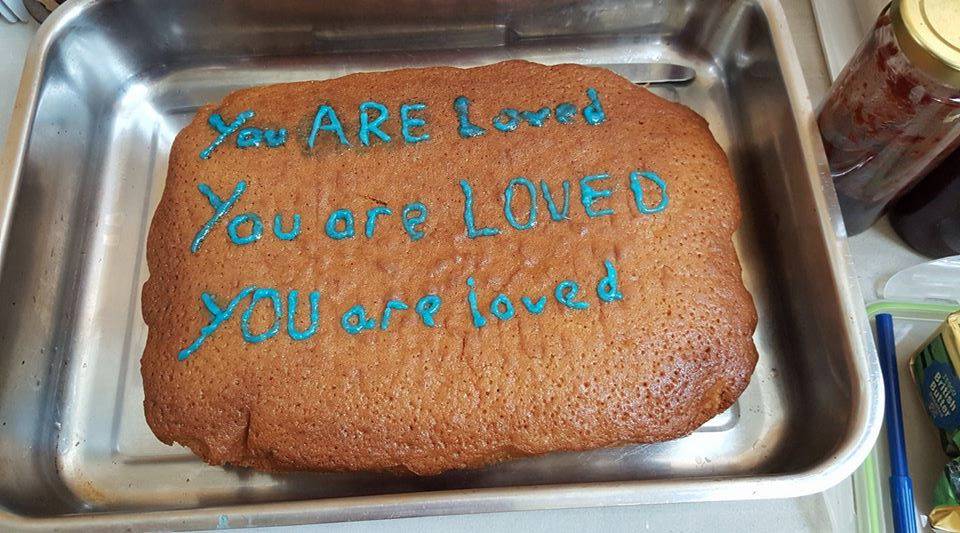 You ARE Loved
You are LOVED
YOU are loved
British
Butter